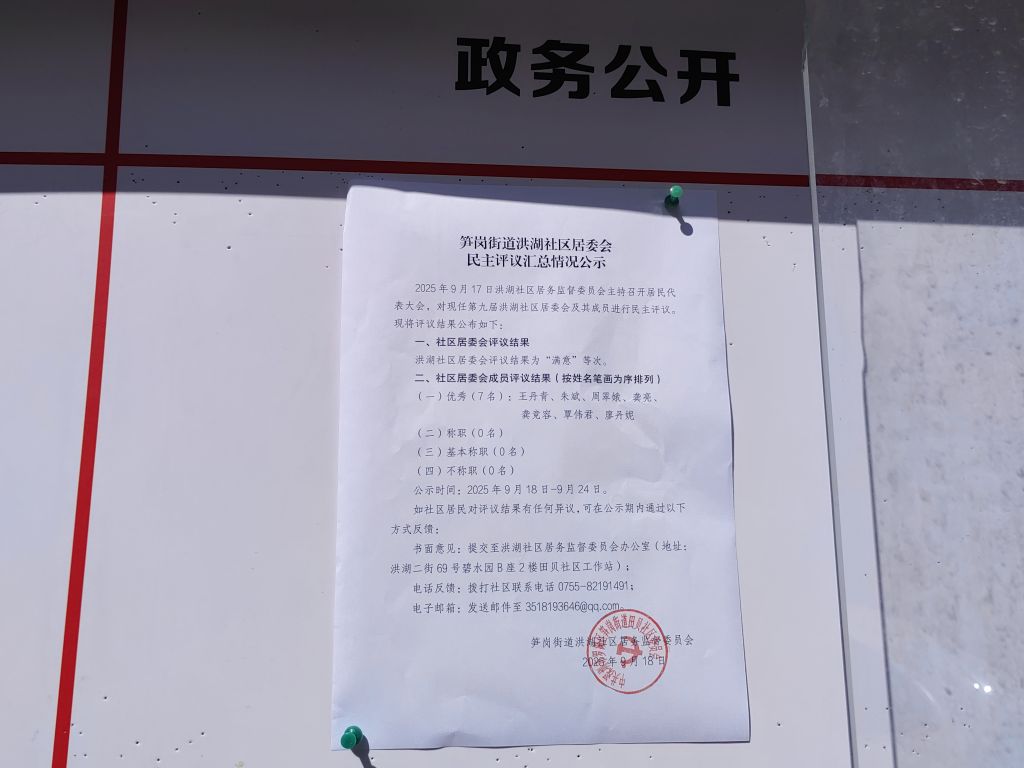 政务公开
笋岗街道洪湖社区居委会
民主评议汇总情况公示
2025年9月17日洪湖社区居务监督委员会主持召开居民代
表大会，对现任第九届洪湖社区居委会及其成员进行民主评议。
现将评议结果公布如下：
一、社区居委会评议结果
洪湖社区居委会评议结果为“满意”等次。
二、社区居委会成员评议结果（按姓名笔画为序排列）
（一）优秀（7名）：王丹青、朱斌、周翠娥、龚亮、
龚竞容、覃伟君、廖丹妮
（二）称职（0名）
（三）基本称职（0名）
（四）不称职（0名）
公示时间：2025年9月18日-9月24日。
如社区居民对评议结果有任何异议，可在公示期内通过以下
方式反馈：
书面意见：提交至洪湖社区居务监督委员会办公室（地址：
洪湖二街69号碧水园B座2楼田贝社区工作站）；
电话反馈：拨打社区联系电话0755-82191491；
电子邮箱：发送邮件至3518193646@qq.com。
笋岗街道洪湖社区居务监督委员会
2025年9月18日